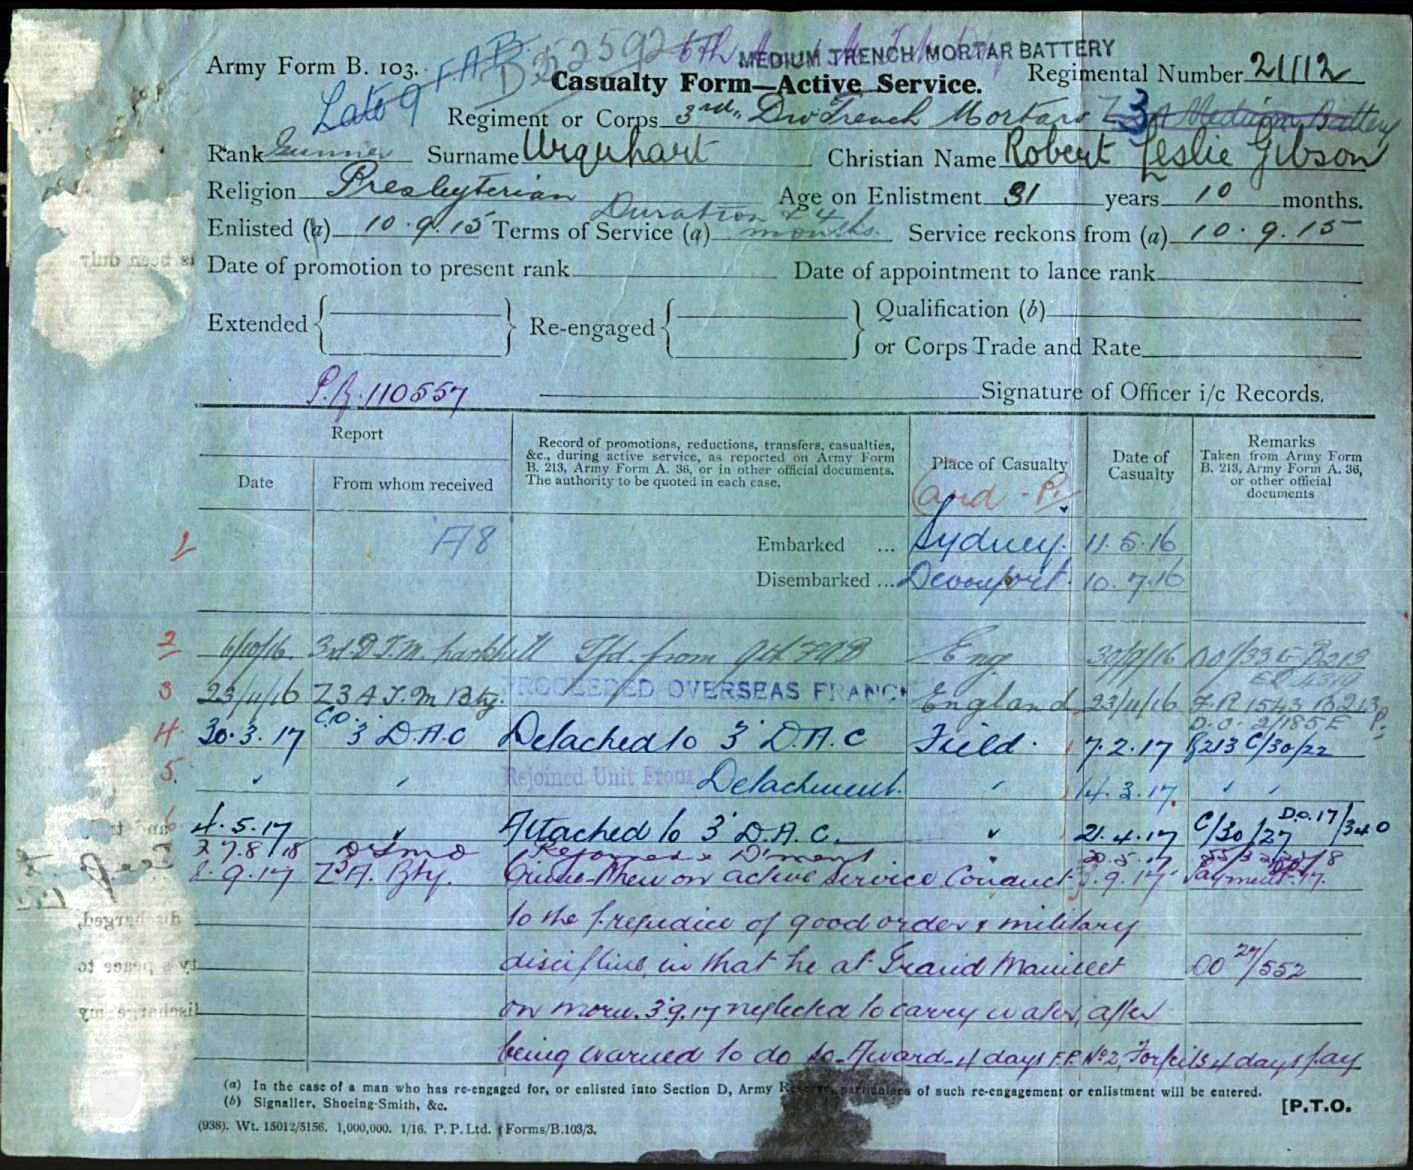 MEDIUM TRENCH MORTAR BATTERY
D 52592
Army Form B. 103. FAB
Casualty Form—Active Service.
Regimental Number 21112
Late 9
Regiment or Corps 3rd Div Trench Mortars Z 3 A Medium Battery
Rank Gunner Surname Urquhart Christian Name Robert Leslie Gibson
Religion Presbyterian Age on Enlistment 31 years 10 months.
Enlisted (a) 10.9.15 Terms of Service (a) Duration & 4 months. Service reckons from (a) 10.9.15
Date of promotion to present rank Date of appointment to lance rank
Extended Re-engaged Qualification (b)
or Corps Trade and Rate
P.Z. 110557
Signature of Officer i/c Records.
Report
Date
From whom received
Record of promotions, reductions, transfers, casualties, &c., during active service, as reported on Army Form B. 213, Army Form A. 36, or in other official documents. The authority to be quoted in each case.
Place of Casualty
Date of Casualty
Remarks
Taken from Army Form B. 213, Army Form A. 36, or other official documents
1 A8 Embarked ... Sydney. 11.5.16
Disembarked ... Devonport. 10.7.16
2 6/10/16. 3rd D.T.M. Larkhill Tfd. from 9th FAB Eng 30/9/16 DO/33 E B213
3 23/11/16 Z3A T.M Bty. PROCEEDED OVERSEAS FRANCE England 23/11/16 F.R 1543 B213
D.O. 2/185E P.
4. 30.3.17 C.O. 3 D.A.C Detached to 3 D.A.C Field. 7.2.17 B213 C/30/22
5. " " Rejoined Unit From Detachment. " 14.3.17. " "
6 4.5.17 " Attached to 3 D.A.C. " 21.4.17 C/30/27 D.O.17/340
27.8/18
8.9.17 Z3A. Bty. Crime—When on active service Conduct 3.9.17
to the prejudice of good order & military
discipline, in that he at
on morn. 3.9.17 neglected to carry water, after
being warned to do so. Award—4 days F.P. No 2, Forfeits 4 days pay
DO 27/552
(a) In the case of a man who has re-engaged for, or enlisted into Section D, Army Reserve, particulars of such re-engagement or enlistment will be entered.
(b) Signaller, Shoeing-Smith, &c.
[P.T.O.
(938). Wt. 15012/5156. 1,000,000. 1/16. P. P. Ltd. Forms/B.103/3.